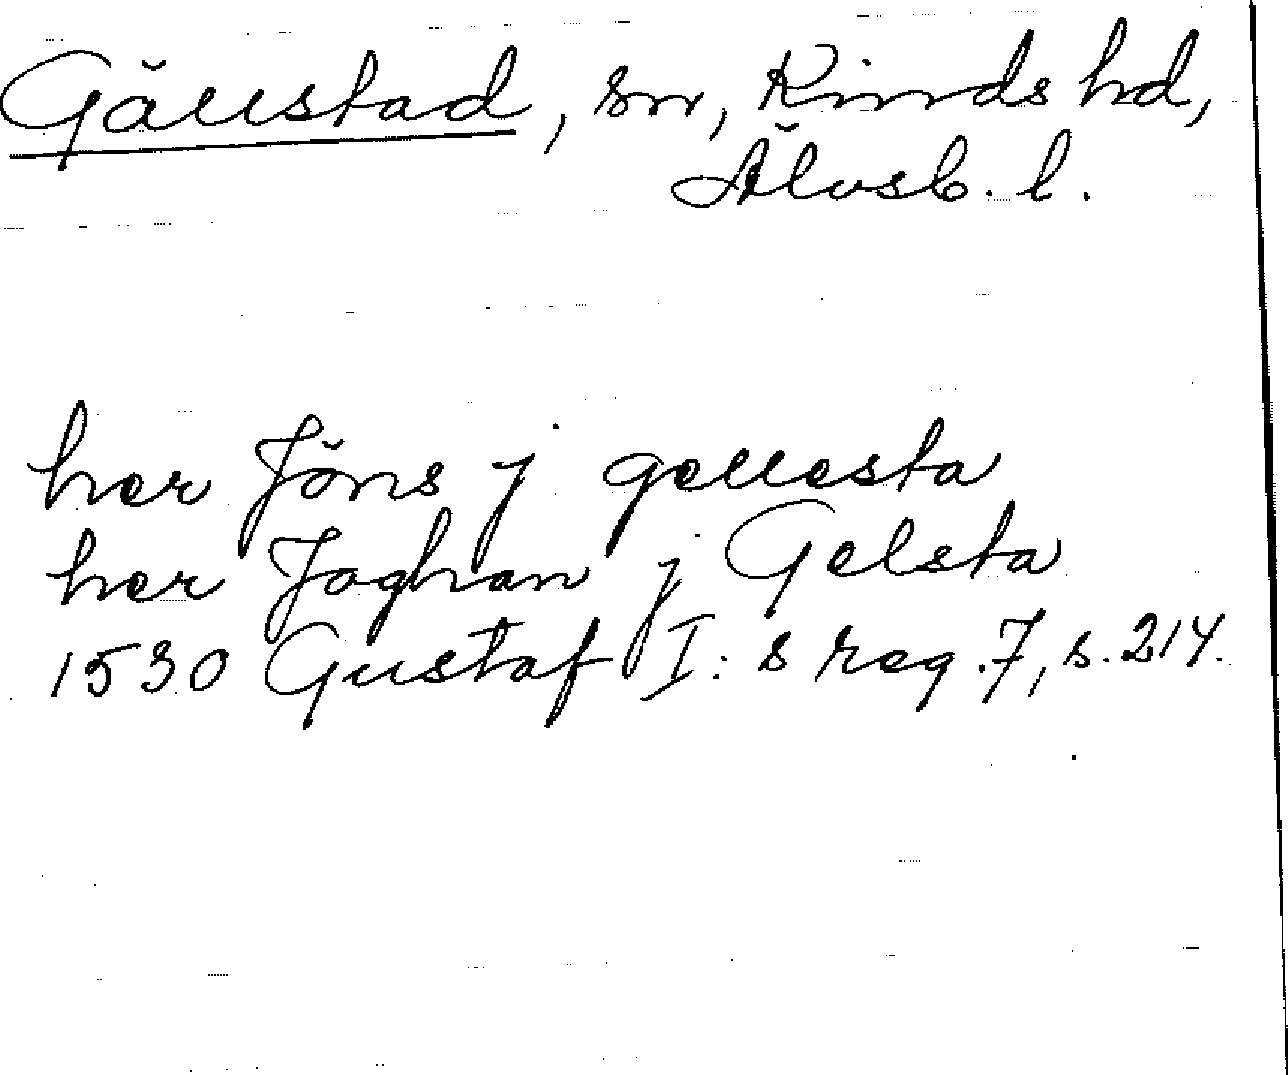 Gällstad, sn, Kinds hd,
Älvsb. l.
her Jöns j gellesta
her Joghan j Gelsta
1530 Gustaf I:s reg. 7, s. 214.